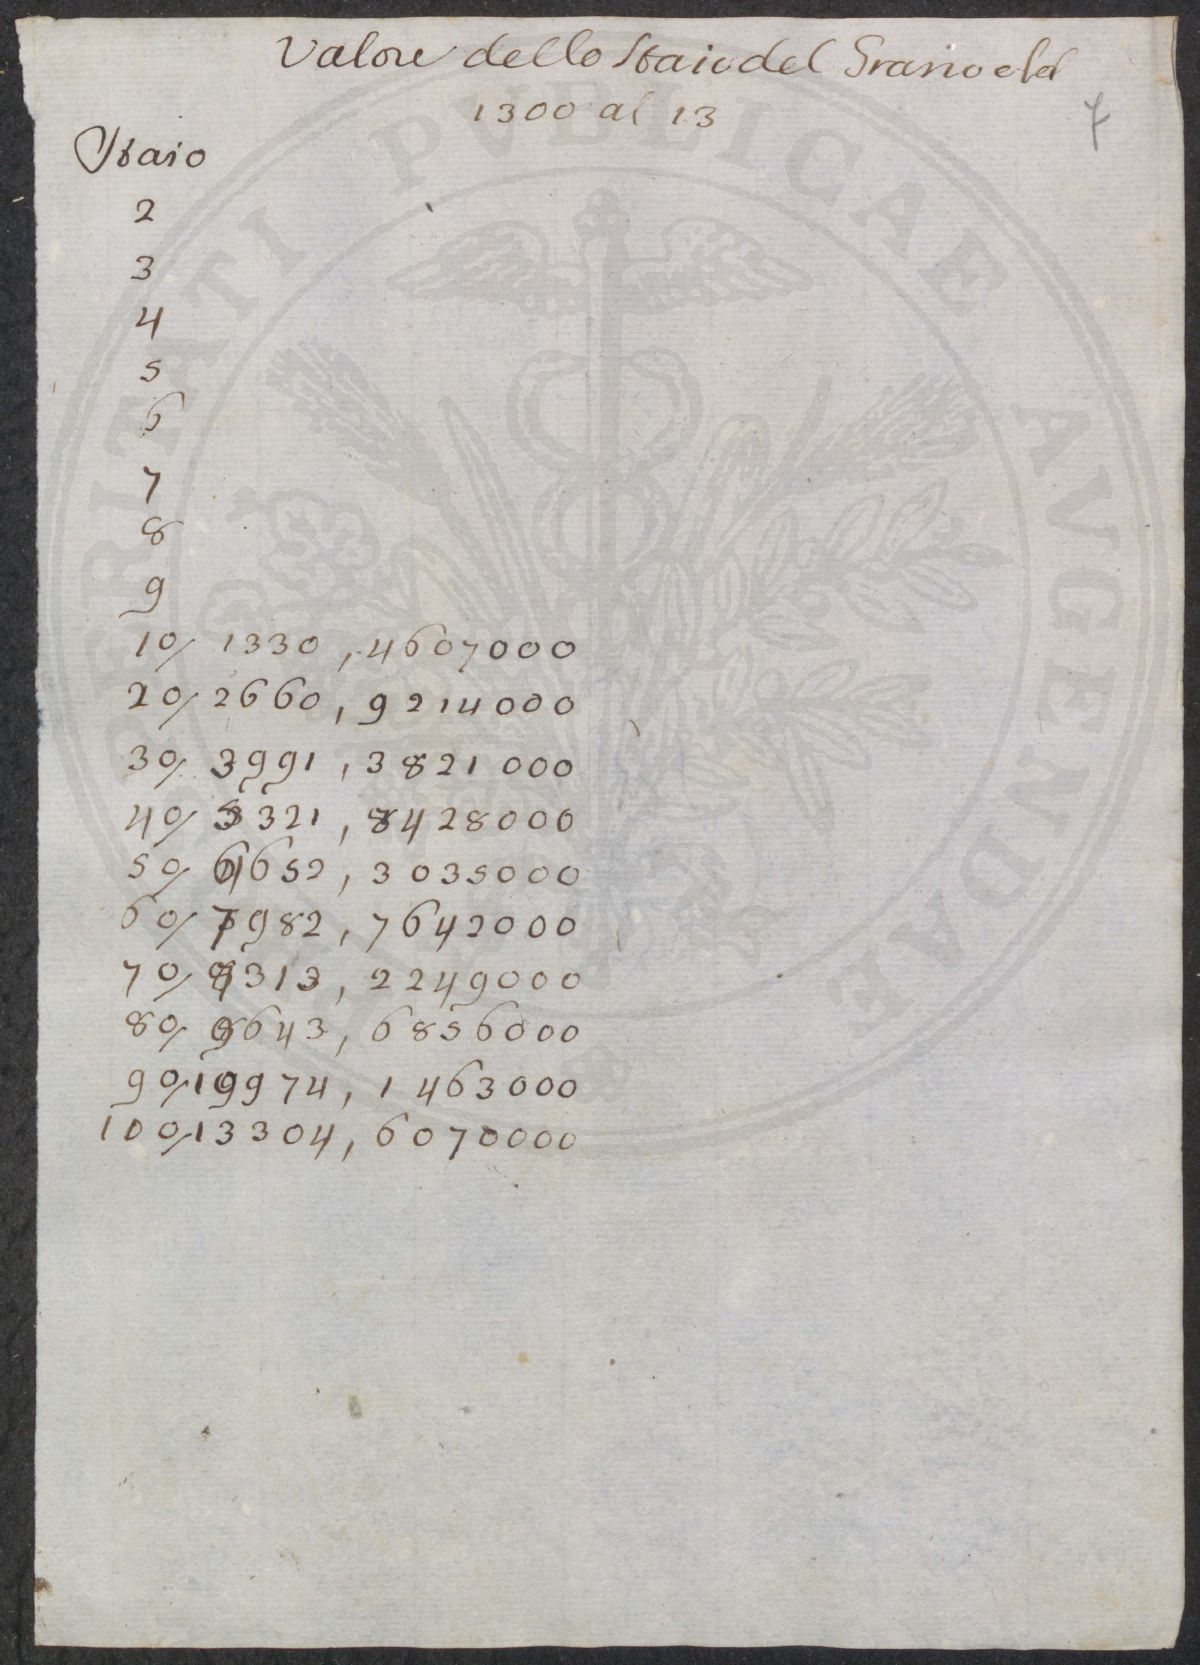 Valore dello Staio del Grano del
1300 al 13
7
Staio
2
3
4
5
6
7
8
9
10/ 1330,4607000
20/ 2660,9214000
30/ 3991,3821000
40/ 5321,8428000
50/ 6652,3035000
60/ 7982,7642000
70/ 9313,2249000
80/ 9643,6856000
90/ 19974,1463000
100/ 13304,6070000
PROSPERITATI PVBLICAE AVGENDAE